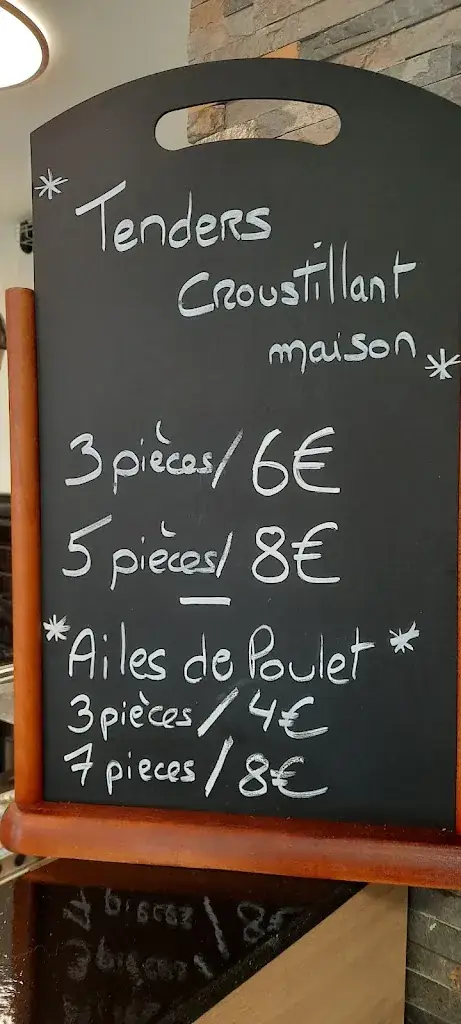 *Tenders
Croustillant
maison*
3 pièces/ 6€
5 pièces/ 8€
*Ailes de Poulet*
3 pièces / 4€
7 pieces / 8€